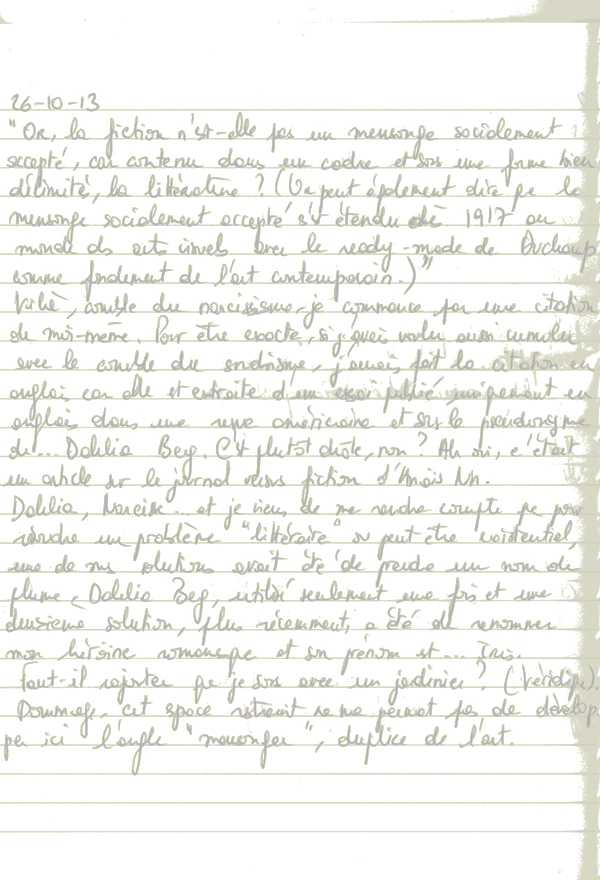 26-10-13
"Or, la fiction n'est-elle pas un mensonge socialement
accepté, car contenu dans un cadre et sous une forme bien
délimité, la littérature ? (On peut également dire que le
mensonge socialement accepté s'est étendu dès 1917 au
monde des arts visuels avec le ready-made de Duchamp
comme fondement de l'art contemporain.)"
Voilà, comble du narcissisme, je commence par une citation
de moi-même. Pour être exacte, si j'avais voulu aussi cumuler
avec le comble du snobisme, j'aurais fait la citation en
anglais car elle est extraite d'un essai publié uniquement en
anglais dans une revue américaine et sous le pseudonyme
de... Dahlia Berg. C'est plutôt drôle, non ? Ah oui, c'était
un article sur le journal versus fiction d'Anaïs Nin.
Dahlia, Narcisse... et je viens de me rendre compte que pour
résoudre un problème "littéraire" ou peut-être existentiel,
une de mes solutions avait été de prendre un nom de
plume, Dahlia Berg, utilisé seulement une fois et une
deuxième solution, plus récemment, a été de renommer
mon héroïne romanesque et son prénom est... Iris.
Faut-il rajouter que je sors avec un jardinier ? (véridique).
Dommage, cet espace restreint ne me permet pas de dévelop
per ici l'angle "mensonger", duplice de l'art.